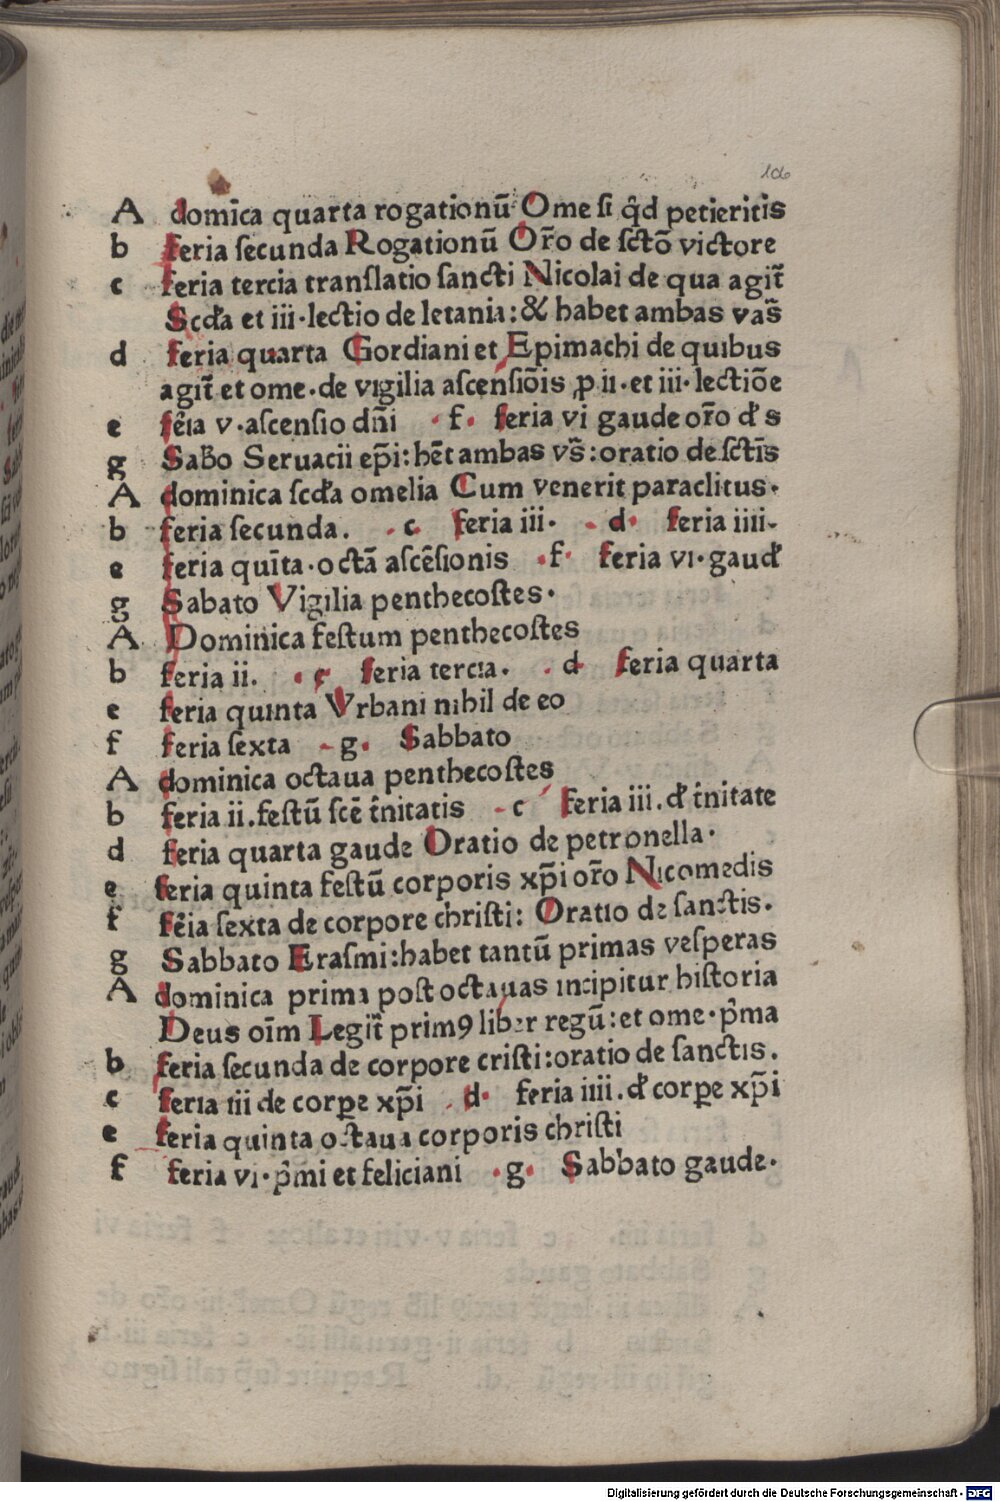 106
A domīca quarta rogationū Ome si qͥd petieritis
b feria secunda Rogationū Or̄o de sctō victore
c feria tercia translatio sancti Nicolai de qua agit᷑
Scd̄a et iii·lectio de letania:& habet ambas vas̄
d feria quarta Gordiani et Epimachi de quibus
agit᷑ et ome·de vigilia ascensiōis ꝓ ii·et iii·lectiōe
e fēia v·ascensio dn̄i ·f· feria vi gaude or̄o d̕ s
g Sabb̄o Seruacii ep̄i:hēt ambas vs̄:oratio de sctīs
A dominica scd̄a omelia Cum venerit paraclitus·
b feria secunda. ·c· feria iii· ·d· feria iiii·
e feria quīta·octā ascēsionis ·f· feria vi·gaud̕
g Sabato Vigilia penthecostes·
A Dominica festum penthecostes
b feria ii. ·c· feria tercia. ·d· feria quarta
e feria quinta Vrbani nihil de eo
f feria sexta ·g· Sabbato
A dominica octaua penthecostes
b feria ii.festū scē t̄nitatis ·c feria iii.d̕ t̄nitate
d feria quarta gaude Oratio de petronella·
e feria quinta festū corporis xp̄i or̄o Nicomedis
f fēia sexta de corpore christi: Oratio de sanctis.
g Sabbato Erasmi:habet tantū primas vesperas
A dominica prima post octauas incipitur historia
Deus oīm Legit᷑ primꝰ liber regū:et ome·pͥma
b feria secunda de corpore cristi:oratio de sanctis.
c feria iii de corꝑe xp̄i ·d· feria iiii.d̕ corꝑe xp̄i
e feria quinta octaua corporis christi
f feria vi·pͥmi et feliciani ·g· Sabbato gaude·
Digitalisierung gefördert durch die Deutsche Forschungsgemeinschaft - DFG